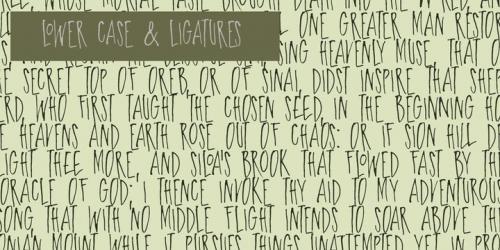 LOWER CASE & LIGATURES
WHOSE MORTAL TASTE BROUGHT DEATH INTO THE WORLD, AND
ONE GREATER MAN RESTO
SING HEAVENLY MUSE, THAT O
E SECRET TOP OF OREB, OR OF SINAI, DIDST INSPIRE THAT SHE
RD, WHO FIRST TAUGHT THE CHOSEN SEED, IN THE BEGINNING HO
E HEAVENS AND EARTH ROSE OUT OF CHAOS: OR IF SION HILL D
IGHT THEE MORE, AND SILOA'S BROOK THAT FLOWED FAST BY TH
ORACLE OF GOD; I THENCE INVOKE THY AID TO MY ADVENTUROU
SONG, THAT WITH NO MIDDLE FLIGHT INTENDS TO SOAR ABOVE TH
ONIAN MOUNT WHILE IT PURSUES THINGS UNATTEMPTED YET IN PRO